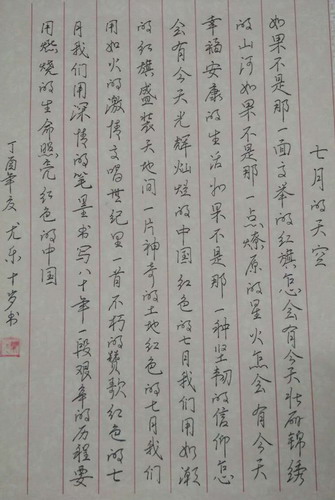 七月的天空
如果不是那一面高举的红旗怎会有今天壮丽锦绣
的山河如果不是那一点燎原的星火怎会有今天
幸福安康的生活如果不是那一种坚韧的信仰怎
会有今天光辉灿烂的中国红色的七月我们用如潮
的红旗盛装天地间一片神奇的土地红色的七月我们
用如火的激情高唱世纪里一首不朽的赞歌红色的七
月我们用深情的笔墨书写八十年一段艰辛的历程要
用燃烧的生命照亮红色的中国
丁酉年夏 尤东十岁书